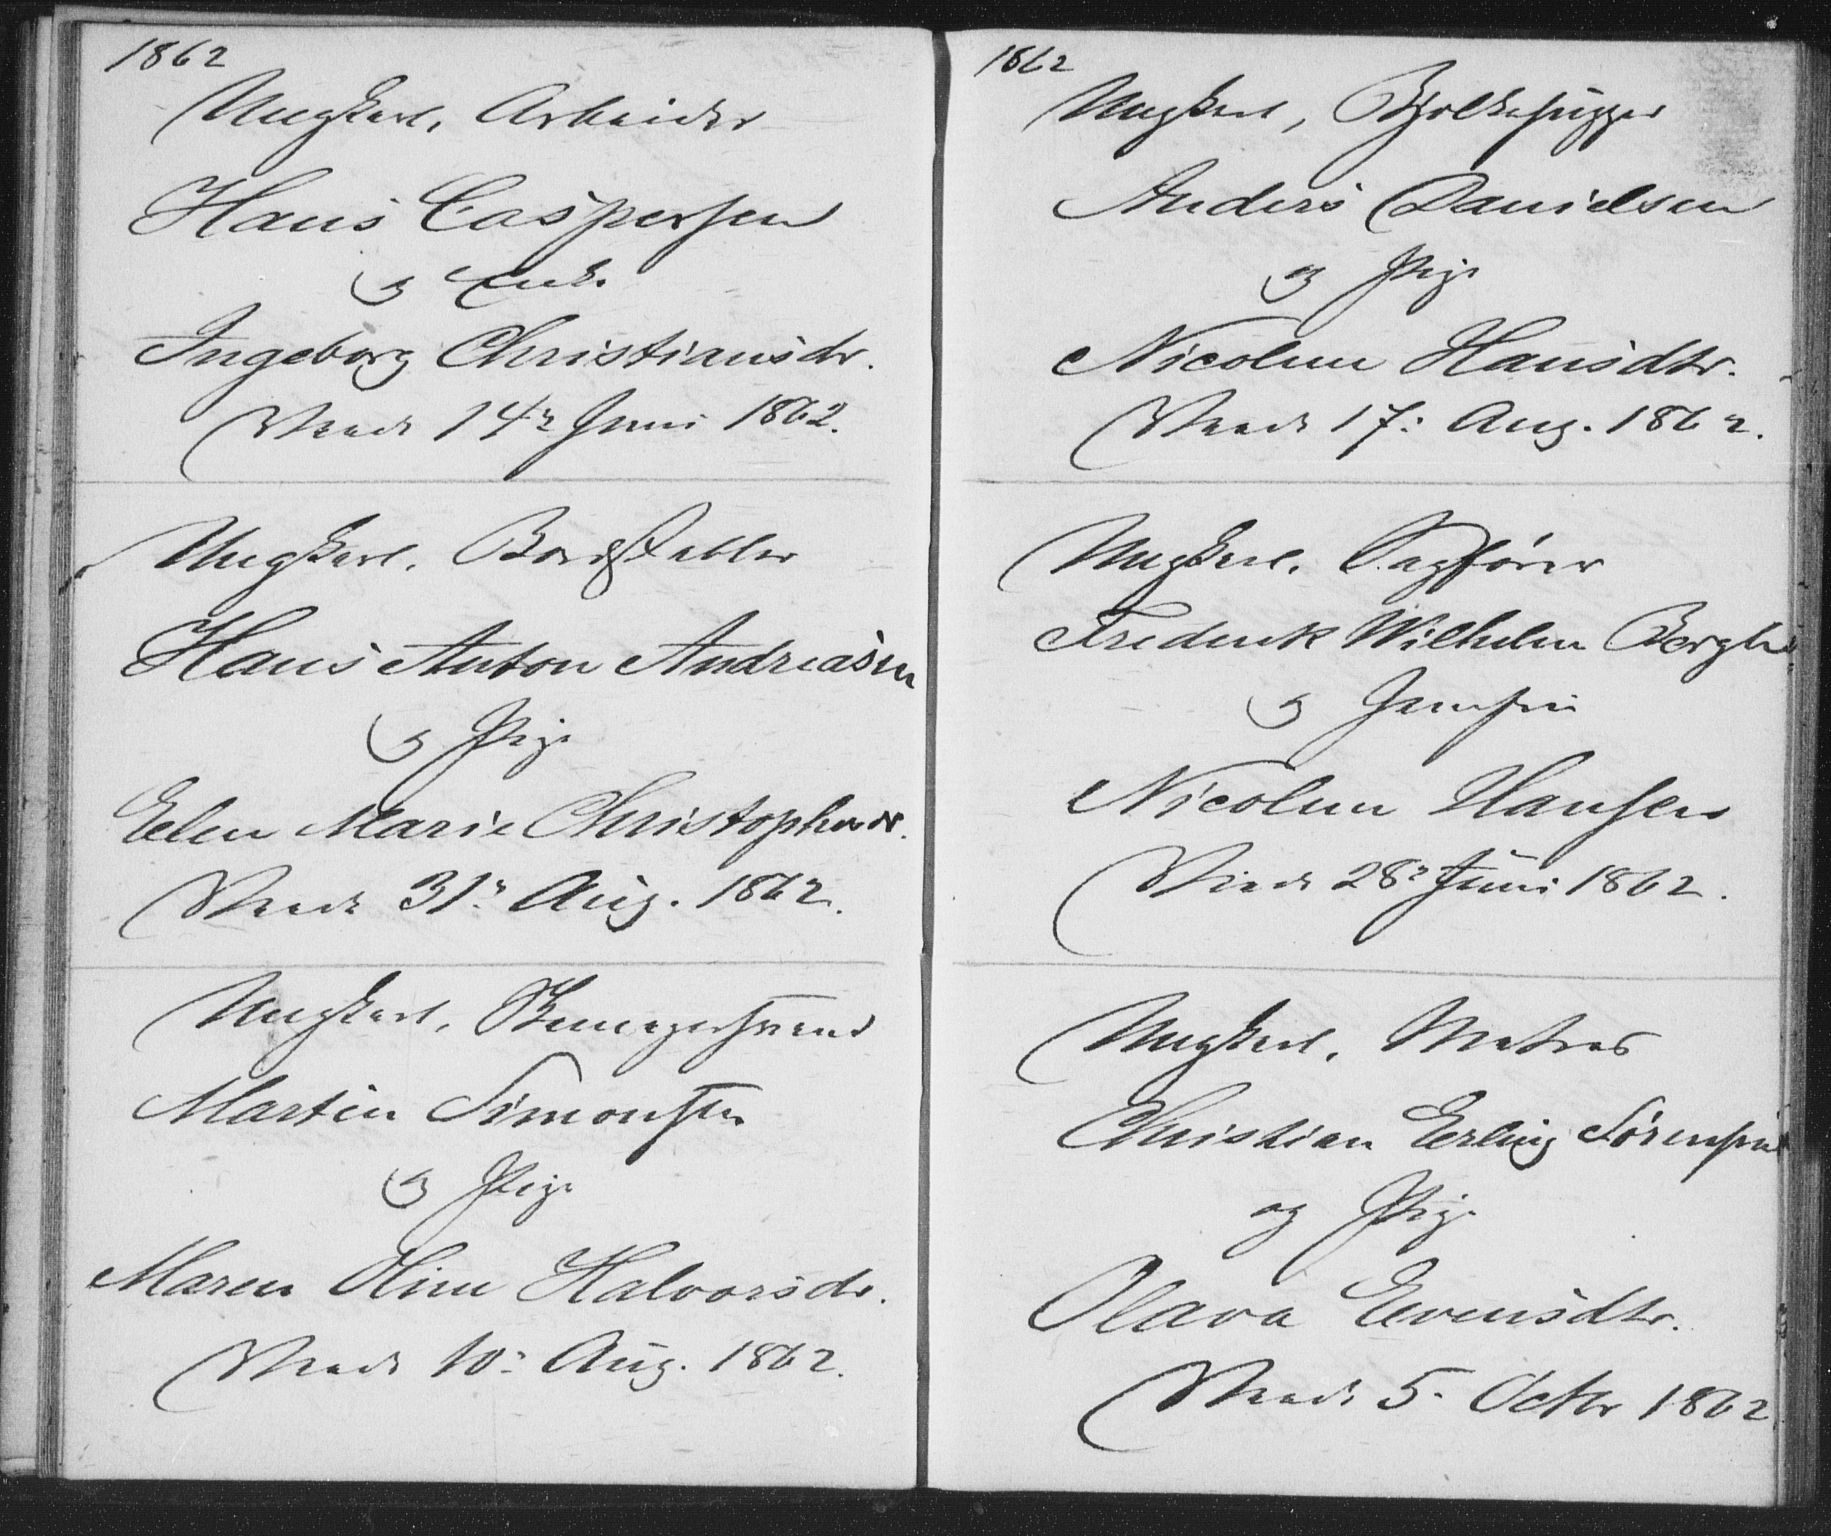 1862
Ungkarl, Arbeider
Hans Caspersen
og Enke
Ingeborg Christiansdr.
Viede 14de Juni 1862.
Ungkarl, Bordstabler
Hans Anton Andreasen
og Pige
Elen Marie Christophersdr.
Viede 31: Aug. 1862.
Ungkarl, Skomagersvend
Martin Simonsen
og Pige
Maren Oline Halvorsdr.
Viede 10: Aug. 1862.
1862
Ungkarl, Bjelkehugger
Anders Danielsen
og Pige
Nicoline Hansdtr.
Viede 17: Aug. 1862.
Ungkarl, Sagfører
Frederik Wilhelm
og Jomfru
Nicoline Hansen
Viede 28: Juni 1862.
Ungkarl, Matros
Christian Erling Sørensen
og Pige
Olava Evensdtr.
Viede 5. Octbr 1862